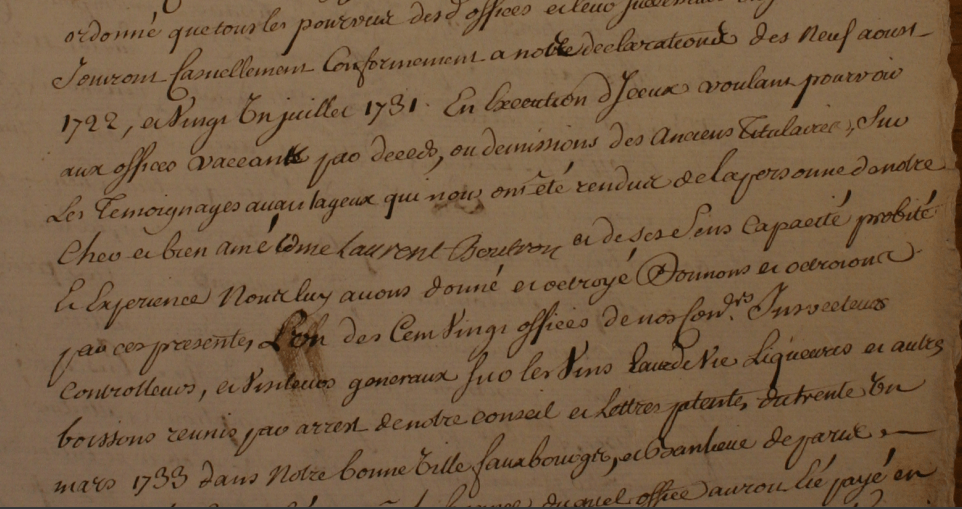 ordonné que tous les pourvus desd. offices et leurs
Jouiront Casuellement Conformement a notre declarations des Neuf aoust
1722, et Vingt Un juillet 1731. En Execution d'Iceux voulant pourvoir
aux offices vaccants par deceds, ou demissions des Anciens Titulaires, Sur
Les Temoignages avantageux qui nous ont été rendus de la personne de notre
Cher et bien amé Laurent et de ses Sens Capacité probité
Et Experience Nous luy avons donné et octroyé Donnons et octroions
par ces presentes L'un des Cent Vingt offices de nos Con.ers Inspecteurs
Controlleurs, et Visiteurs generaux sur les Vins Eaux de Vie Liqueurs et autres
boissons reunis par arrest de notre conseil et Lettres patentes du trente Un
mars 1733 dans Notre bonne Ville fauxbourgs, et Banlieue de paris
du quel office auroit été payé en